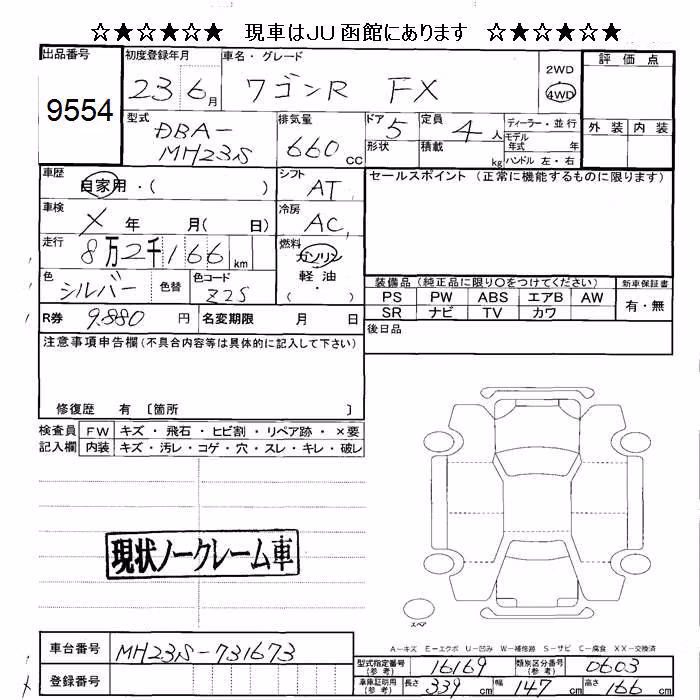 ☆★☆★☆★ 現車はJU函館にあります ☆★☆★☆★
出品番号 初度登録年月 車名・グレード
9554 23 6月 ワゴンR FX 2WD 4WD
評価点
外装 内装
型式 DBA-MH23S
排気量 660cc
ドア 5 形状
定員 4人 積載 kg
ディーラー・並行
モデル年式 年
ハンドル 左・右
車歴 自家用・( )
シフト AT
車検 X年 月( 日)
冷房 AC
走行 8万2千166km
燃料 ガソリン 軽油 ( ・ )
色 シルバー 色替 色コード Z2S
R券 9.880円 名変期限 月 日
セールスポイント (正常に機能するものに限ります)
装備品 (純正品に限り○をつけてください) 新車保証書
PS PW ABS エアB AW 有・無
SR ナビ TV カワ
後日品
注意事項申告欄 (不具合内容等は具体的に記入して下さい)
修復歴 有 〔箇所 〕
検査員 FW キズ・飛石・ヒビ割・リペア跡・×要
記入欄 内装 キズ・汚レ・コゲ・穴・スレ・キレ・破レ
現状ノークレーム車
スペア
A-キズ E-エクボ U-凹み W-補修跡 S-サビ C-腐食 XX-交換済
車台番号 MH23S-731673
登録番号
型式指定番号(参考) 16169 類別区分番号(参考) 0603
車庫証明用(参考) 長さ 339cm 幅 147cm 高さ 166cm